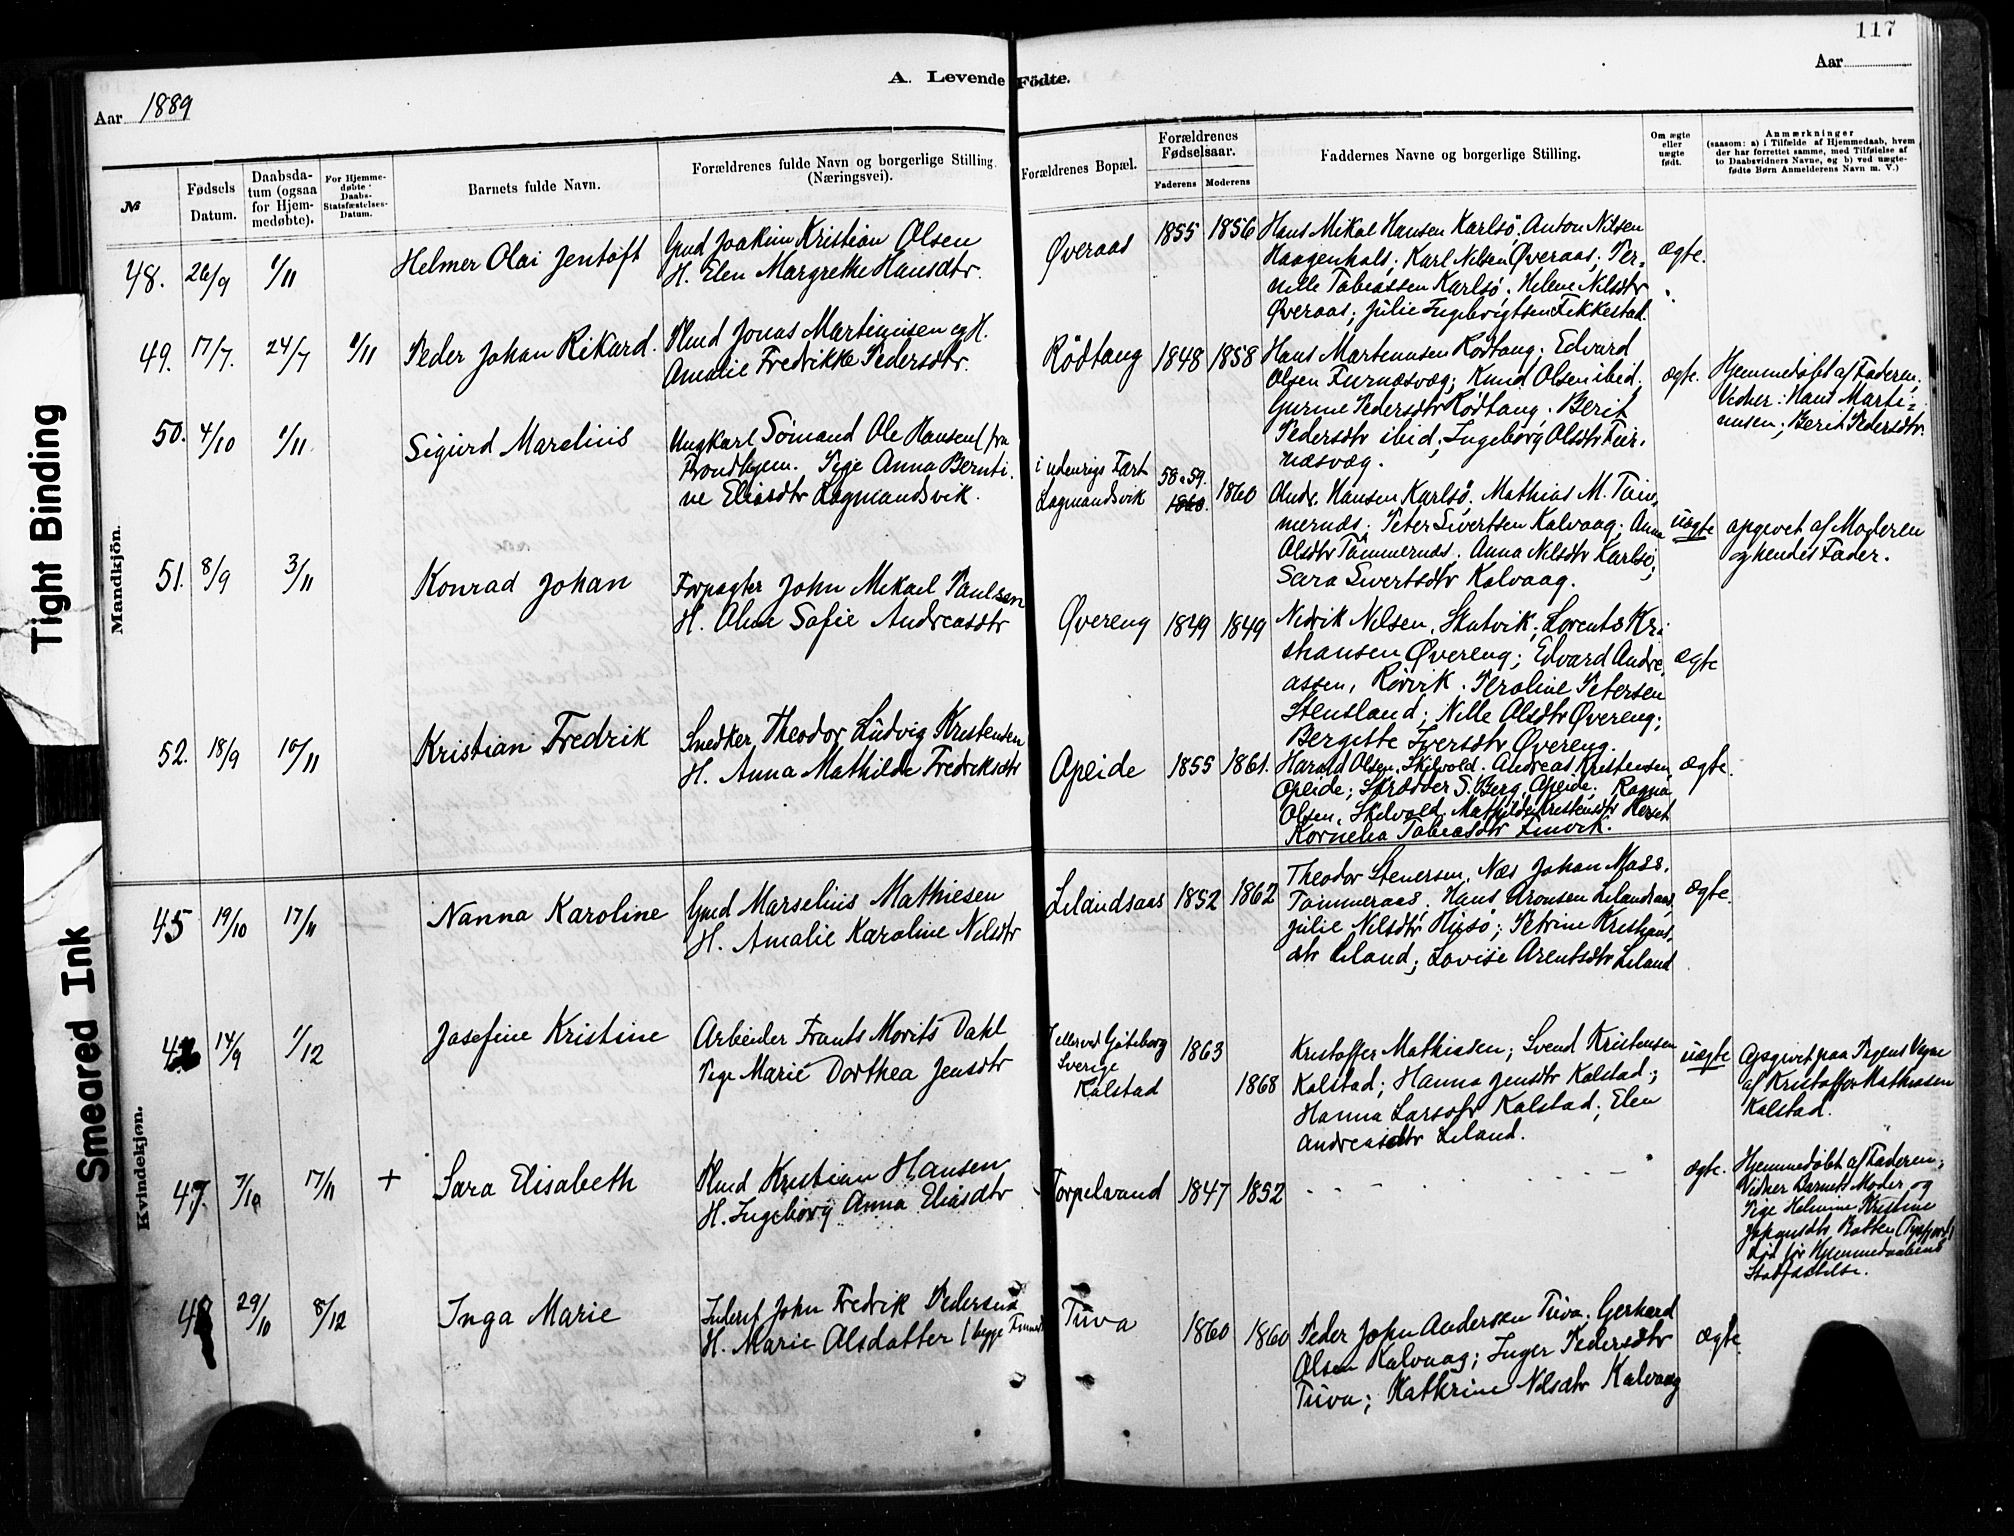 117
A. Levende Fødte.
Aar 1889
Aar
№
Fødsels Datum.
Daabsda-
tum (ogsaa
for Hjem-
medøbte).
For Hjemme-
døbte
Daabs-
Statsfæstelses-
Datum.
Barnets fulde Navn.
Forældrenes fulde Navn og borgerlige Stilling
(Næringsvei).
Forældrenes Bopæl.
Forældrenes
Fødselsaar.
Faderens
Moderens
Faddernes Navne og borgerlige Stilling.
Om ægte
eller
uægte
født.
Anmærkninger
(saasom: a) i Tilfælde af Hjemmedaab, hvem
der har forrettet samme, med Tilføielse af
to Daabsvidners Navne, og b) ved uægte-
fødte Børn Anmelderens Navn m. V.)
Tight Binding
Smeared Ink
Mandkjön.
48. 26/9 1/11
Helmer Olai Jentoft
Gmd Joakim Kristian Olsen
H. Elen Margrethe Hansdtr.
Øveraas
1855 1856
Hans Mikal Hansen Karlsö. Anton Nilsen
Haagenhals; Karl Nilsen Øveraas; Per-
nille Tobiassen Karlsö. Helene Nilsdtr
Øveraas; Julie Ingebrigtsen Fikkestad.
ægte.
49. 17/7. 24/7 1/11
Peder Johan Rikard.
Pmd Jonas Martinusen og H.
Amalie Fredrikke Pedersdtr.
Rödtang
1848 1858
Hans Martinusen Rödtang; Edvard
Olsen Furnæsvæg; Knud Olsen ibid;
Gurine Pedersdtr Rödtang. Berit
Pedersdtr ibid; Ingeborg Olsdtr Fur-
næsvæg.
ægte.
Hjemmedøbt af Faderen;
Vidner: Hans Marti-
nusen; Berit Pedersdtr.
50. 4/10 1/11
Sigurd Marelius
Ungkarl Sömand Ole Hansen (fra
Trondhjem. Pige Anna Bernti-
ne Eliasdtr Lagmandsvik.
i udenrigs Fart
Lagmandsvik
58 a 59.
1860. 1860
Andr. Hansen Karlsö. Mathias M. Tøm-
mernæs. Peter Sivertsen Kalvaag; Anna
Olsdtr Tømmernæs. Anna Nilsdtr Karlsö;
Sara Sivertsdtr Kalvaag.
uægte
opgivet af Moderen
og hendes Fader.
51. 8/9 3/11
Konrad Johan
Forpagter John Mikael Paulsen
H. Oline Sofie Andreasdtr
Øvereng
1849 1849
Nidrik Nilsen, Skutvik; Lorents Kri-
stiansen Øvereng; Edvard Andre-
assen, Rörvik. Peroline Petersen
Stensland; Nille Olsdtr Øvereng;
Bergitte Iversdtr Øvereng.
ægte
52. 18/9 10/11
Kristian Fredrik
Snedker Theodor Ludvig Kristensen
H. Anna Mathilde Fredriksdtr
Apeide
1855 1861.
Harald Olsen, Skilvold. Andreas Kristensen,
Apeide; Skrædder S. Berg, Apeide; Ragna
Olsen, Skilvold. Mathilde Kristensdtr Herset
Kornelia Tobiasdtr Finvik.
ægte.
Kvindekjön.
45 19/10 17/11
Nanna Karoline
Gmd Marselius Mathiesen
H. Amalie Karoline Nilsdtr
Lilandsaas
1852 1862
Theodor Stenersen, Næs Johan Mass.
Tømmeraas, Hans Aronsen Lilandsaas,
Julie Nilsdtr Husö; Petrine Kristians-
dtr Liland; Lovise Arentsdtr Liland
ægte.
46 14/9 1/12
Josefine Kristine
Arbeider Frants Morits Dahl
Pige Marie Dorthea Jensdtr
eller ved Göteborg
Sverige
Kalstad
1863
1868
Kristoffer Mathissen; Svend Kristensen
Kalstad; Hanna Jensdtr Kalstad;
Hanna Larsdtr Kalstad; Elen
Andreasdtr Liland.
uægte
Opgivet paa Pigens Vegne
af Kristoffer Mathiasen
Kalstad.
47. 7/10 17/11 +
Sara Elisabeth
Pmd Kristian Hansen
H. Ingeborg Anna Eliasdtr
Torpelvand
1847 1852
- - - - - -
ægte.
Hjemmedøbt af Faderen;
Vidner Barnets Moder og
Pige Helmine Kristine
Johansdtr Botten (Tysfjord)
død før Hjemmedaabens
Stadfæstelse.
48 29/10 8/12
Inga Marie
Inderst John Fredrik Pedersen
H. Marie Olsdatter (begge Finner)
Tuva
1860 1860
Peder John Andersen Tuva. Gerhard
Olsen Kalvaag; Inger Pedersdtr
Tuva; Kathrine Nilsdtr Kalvaag
ægte.